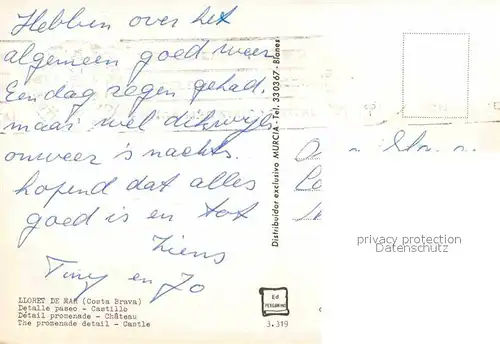 Hebben over het
algemeen goed weer
Een dag regen gehad.
maar wel dikwijls
onweer 's nachts.
hopend dat alles
goed is en tot
ziens
Tiny en Jo
LLORET DE MAR (Costa Brava)
Detalle paseo - Castillo
Détail promenade - Château
The promenade detail - Castle
Ed
PERGAMINO
3.319
Distribuidor exclusivo MURCIA - Tel. 330367 - Blanes
privacy protection
www.ansichtskarten-center.de